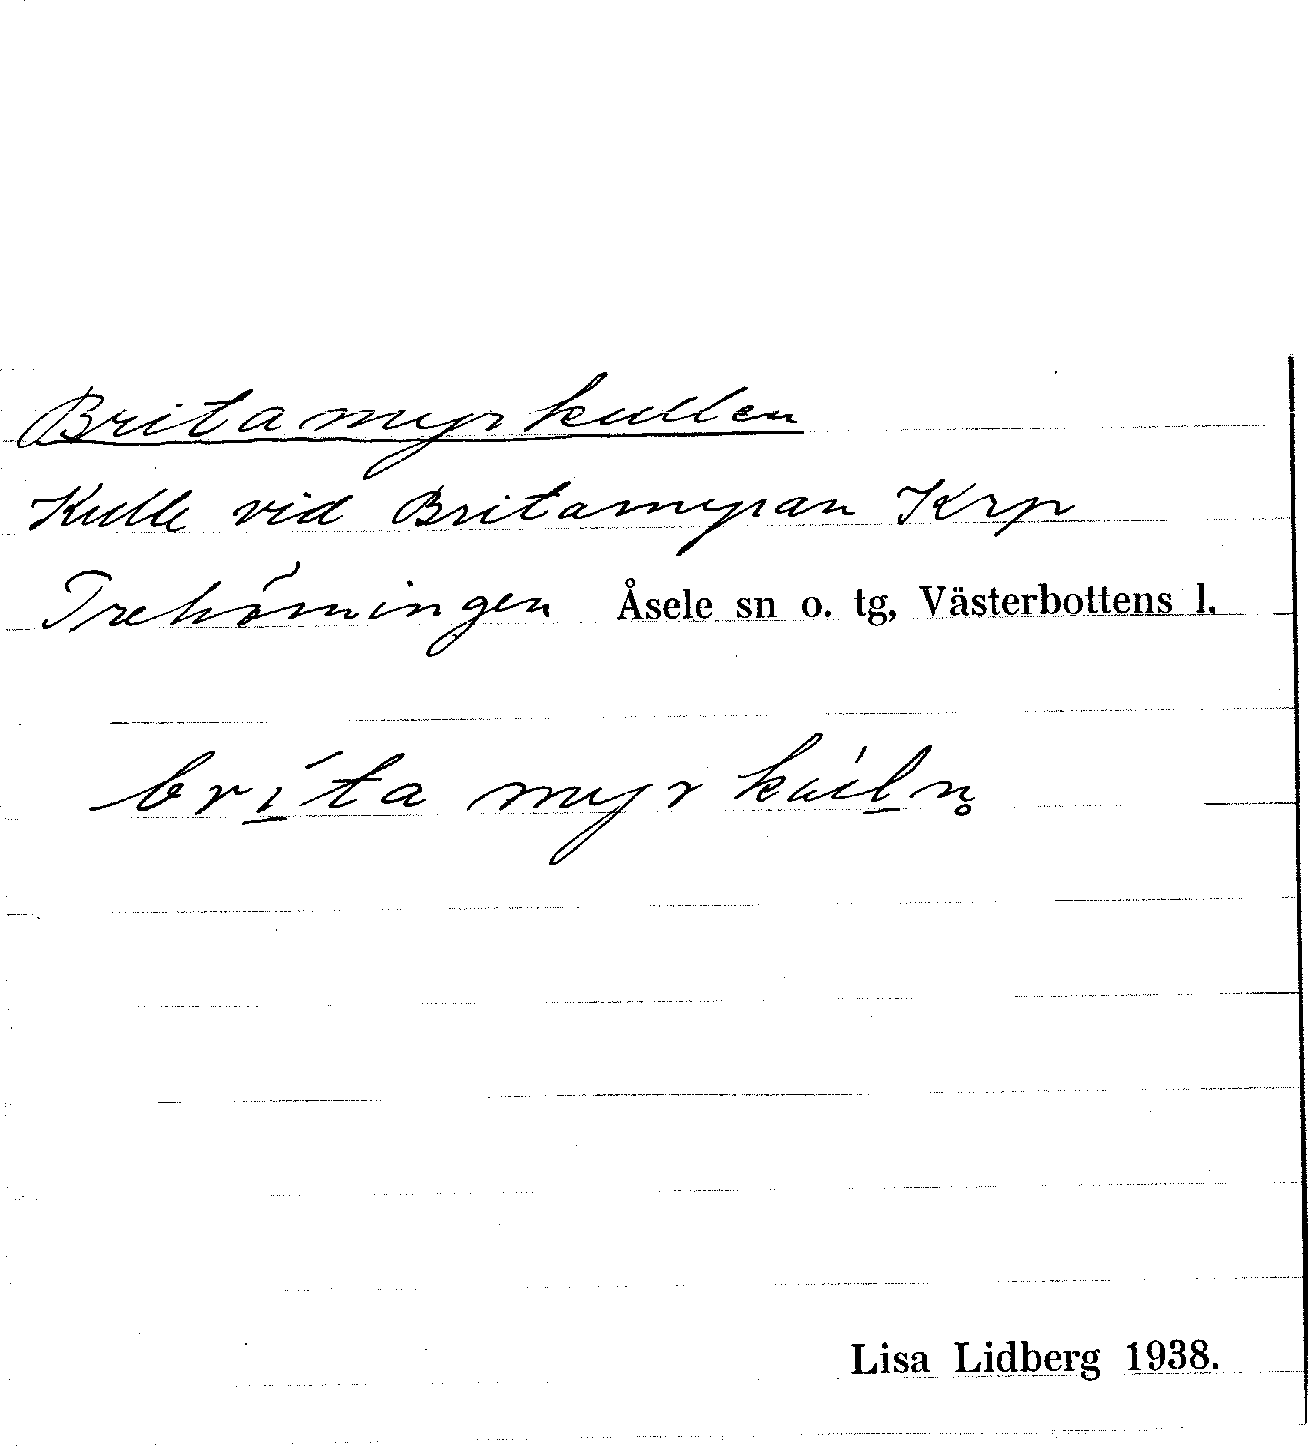 Britamyrkullen
Kulle vid Britamyran Krp
Trehörningen Åsele sn o. tg, Västerbottens l.
brí̲ta myrkúl̲n̥
Lisa Lidberg 1938.